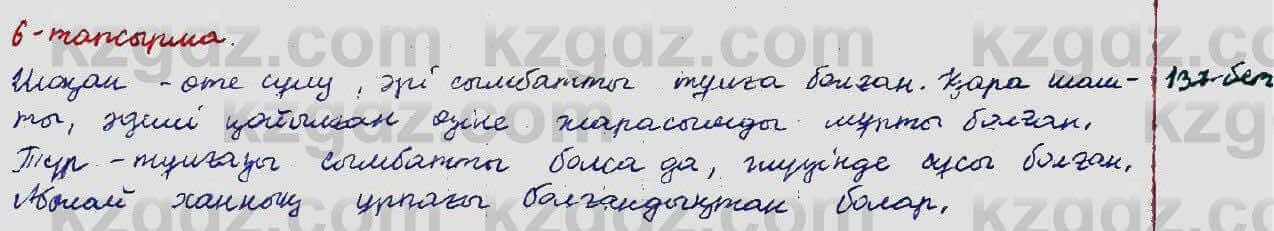 6-тапсырма.
Шоқан - өте сұлу, әрі сымбатты тұлға болған. Қара шаш- 137-бет
ты, әдемі қойылған өзіне жарасымды мұртты болған.
Түр - тұлғасы сымбатты болса да, жүзінде ызғар болған.
Абылай ханның ұрпағы болғандықтан болар.